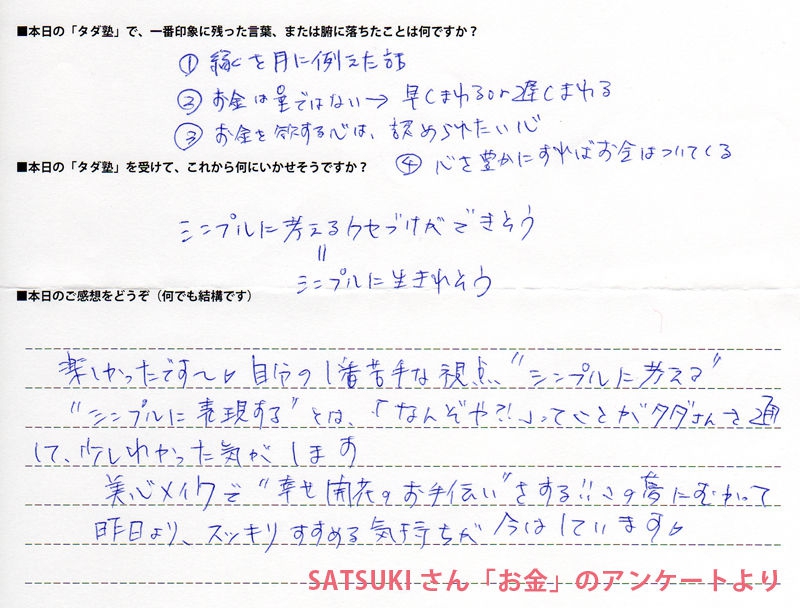 ■本日の「タダ塾」で、一番印象に残った言葉、または腑に落ちたことは何ですか？
① 縁を月に例えた話
② お金は量ではない→ 早くまわるor遅くまわる
③ お金を欲する心は、認められたい心
④ 心を豊かにすればお金はついてくる
■本日の「タダ塾」を受けて、これから何にいかせそうですか？
シンプルに考えるクセづけができそう
=
シンプルに生きれそう
■本日のご感想をどうぞ（何でも結構です）
楽しかったです〜♪ 自分の1番苦手な視点"シンプルに考える"
"シンプルに表現する"とは、「なんぞや?!」ってことがタダさんを通
して、少しわかった気がします
美心メイクで"幸せ開花のお手伝い"をする!!この夢にむかって
昨日より、スッキリすすめる気持ちが今はしています♪
SATSUKIさん「お金」のアンケートより